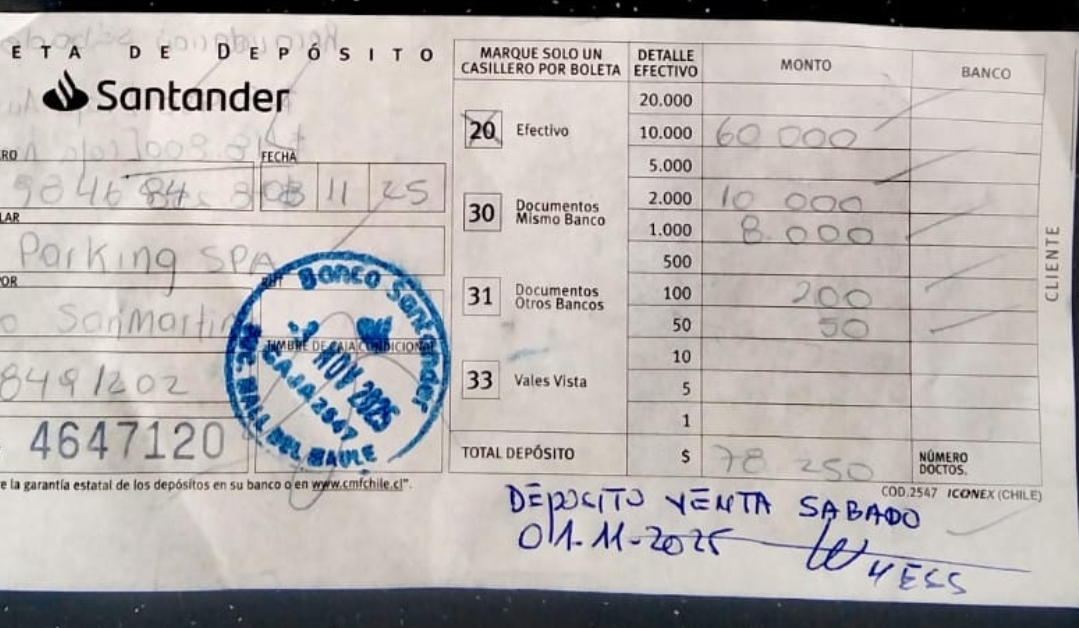 ETA DE DEPÓSITO
Santander
RO
FECHA
11 25
LAR
Parking SPA
POR
o Sanmartin
8491202
4647120
Banco Santander
TIMBRE DE CAJA CONDICIONAL
NOV 2025
CAJA 2647
SUC. MALL DEL MAULE
e la garantía estatal de los depósitos en su banco o en www.cmfchile.cl".
MARQUE SOLO UN
CASILLERO POR BOLETA
20 Efectivo
30 Documentos
Mismo Banco
31 Documentos
Otros Bancos
33 Vales Vista
TOTAL DEPÓSITO
DETALLE
EFECTIVO
MONTO
BANCO
20.000
10.000 60 000
5.000
2.000 10 000
1.000 8.000
500
100 200
50 50
10
5
1
$ 78 250
NÚMERO
DOCTOS.
CLIENTE
COD.2547 ICONEX (CHILE)
DEPOSITO VENTA SABADO
01-11-2025
HESS